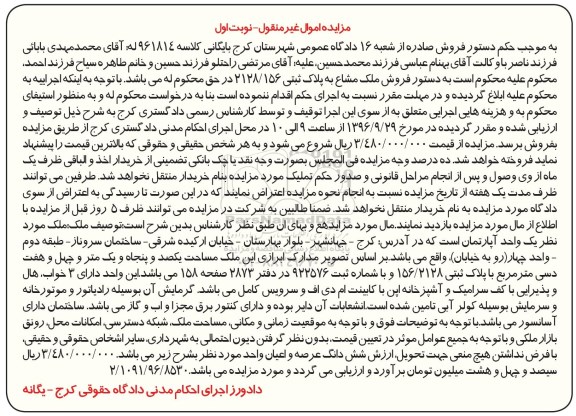 مزایده اموال غیر منقول - نوبت اول
به موجب حکم دستور فروش صادره از شعبه ۱۶ دادگاه عمومی شهرستان کرج بایگانی کلاسه ۹۶۱۸۱۴ له: آقای محمدمهدی بابائی
فرزند ناصر با وکالت آقای بهنام عباسی فرزند محمدحسین، علیه: آقای مرتضی راحتلو فرزند حسین و خانم طاهره سیاح فرزند احمد،
محکوم علیه محکوم است به دستور فروش ملک مشاع به پلاک ثبتی ۲۱۲۸/۱۵۶ در حق محکوم له می باشد. با توجه به اینکه اجراییه به
محکوم علیه ابلاغ گردیده و در مهلت مقرر نسبت به اجرای حکم اقدام ننموده است بنا به درخواست محکوم له و به منظور استیفای
محکوم به و هزینه هایی اجرایی متعلق به از سوی این اجرا توقیف و توسط کارشناس رسمی دادگستری کرج به شرح ذیل توصیف و
ارزیابی شده و مقرر گردیده در مورخ ۱۳۹۶/۹/۲۹ از ساعت ۹ الی ۱۰ در محل اجرای احکام مدنی دادگستری کرج از طریق مزایده
بفروش برسد. مزایده از قیمت ۳/۴۸۰/۰۰۰/۰۰۰ ریال شروع می شود و به هر شخص حقیقی و حقوقی که بالاترین قیمت را پیشنهاد
نماید فروخته خواهد شد. ده درصد وجه مزایده فی المجلس بصورت وجه نقد یا چک بانکی تضمینی از خریدار اخذ و الباقی ظرف یک
ماه از وی وصول و پس از انجام مراحل قانونی و صدور حکم تملیک مورد مزایده بنام خریدار منتقل خواهد شد. طرفین می توانند
ظرف مدت یک هفته از تاریخ مزایده نسبت به انجام نحوه مزایده اعتراض نمایند که در این صورت تا رسیدگی به اعتراض از سوی
دادگاه مورد مزایده به نام خریدار منتقل نخواهد شد. ضمنا طالبین به شرکت در مزایده می توانند ظرف ۵ روز قبل از مزایده با
اطلاع از مال مورد مزایده بازدید نمایند. مال مورد مزایده و بهای آن طبق نظر کارشناس بدین شرح است: توصیف ملک: ملک مورد
نظر یک واحد آپارتمان است که در آدرس: کرج - جهانشهر- بلوار بهارستان - خیابان ارکیده شرقی- ساختمان سروناز- طبقه دوم
- واحد چهار (رو به خیابان)، واقع می باشد. بر اساس تصویر مدارک ابرازی این ملک مساحت یکصد و پنجاه و یک متر و چهل و هفت
دسی متر مربع با پلاک ثبتی ۱۵۶/۲۱۲۸ و با شماره ثبت ۹۲۲۵۷۶ در دفتر ۲۸۷۳ صفحه ۱۵۸ می باشد. این واحد دارای ۳ خواب، هال
و پذیرایی با کف سرامیک و آشپزخانه اپن با کابینت ام دی اف و سرویس کامل می باشد. گرمایش آن بوسیله رادیاتور و موتورخانه
و سرمایش بوسیله کولر آبی تامین شده است. انشعابات آن دایر بوده و دارای کنتور برق مجزا و آب و گاز می باشد. ساختمان دارای
آسانسور می باشد. با توجه به توضیحات فوق و با توجه به موقعیت زمانی و مکانی، مساحت ملک، شبکه دسترسی، امکانات محل، رونق
بازار ملکی و با توجه به جمیع عوامل موثر در تعیین قیمت، بدون نظر گرفتن دیون احتمالی به شهرداری، سایر اشخاص حقوقی و حقیقی،
با فرض نداشتن هیچ منعی جهت تحویل، ارزش شش دانگ عرصه و اعیان واحد مورد نظر بشرح زیر می باشد. ۳/۴۸۰/۰۰۰/۰۰۰ ریال
سیصد و چهل و هشت میلیون تومان برآورد و ارزیابی می گردد و مورد مزایده می باشد. ۲/۱۰۹۱/۹۶/۸۵۳۰
دادورز اجرای احکام مدنی دادگاه حقوقی کرج - یگانه